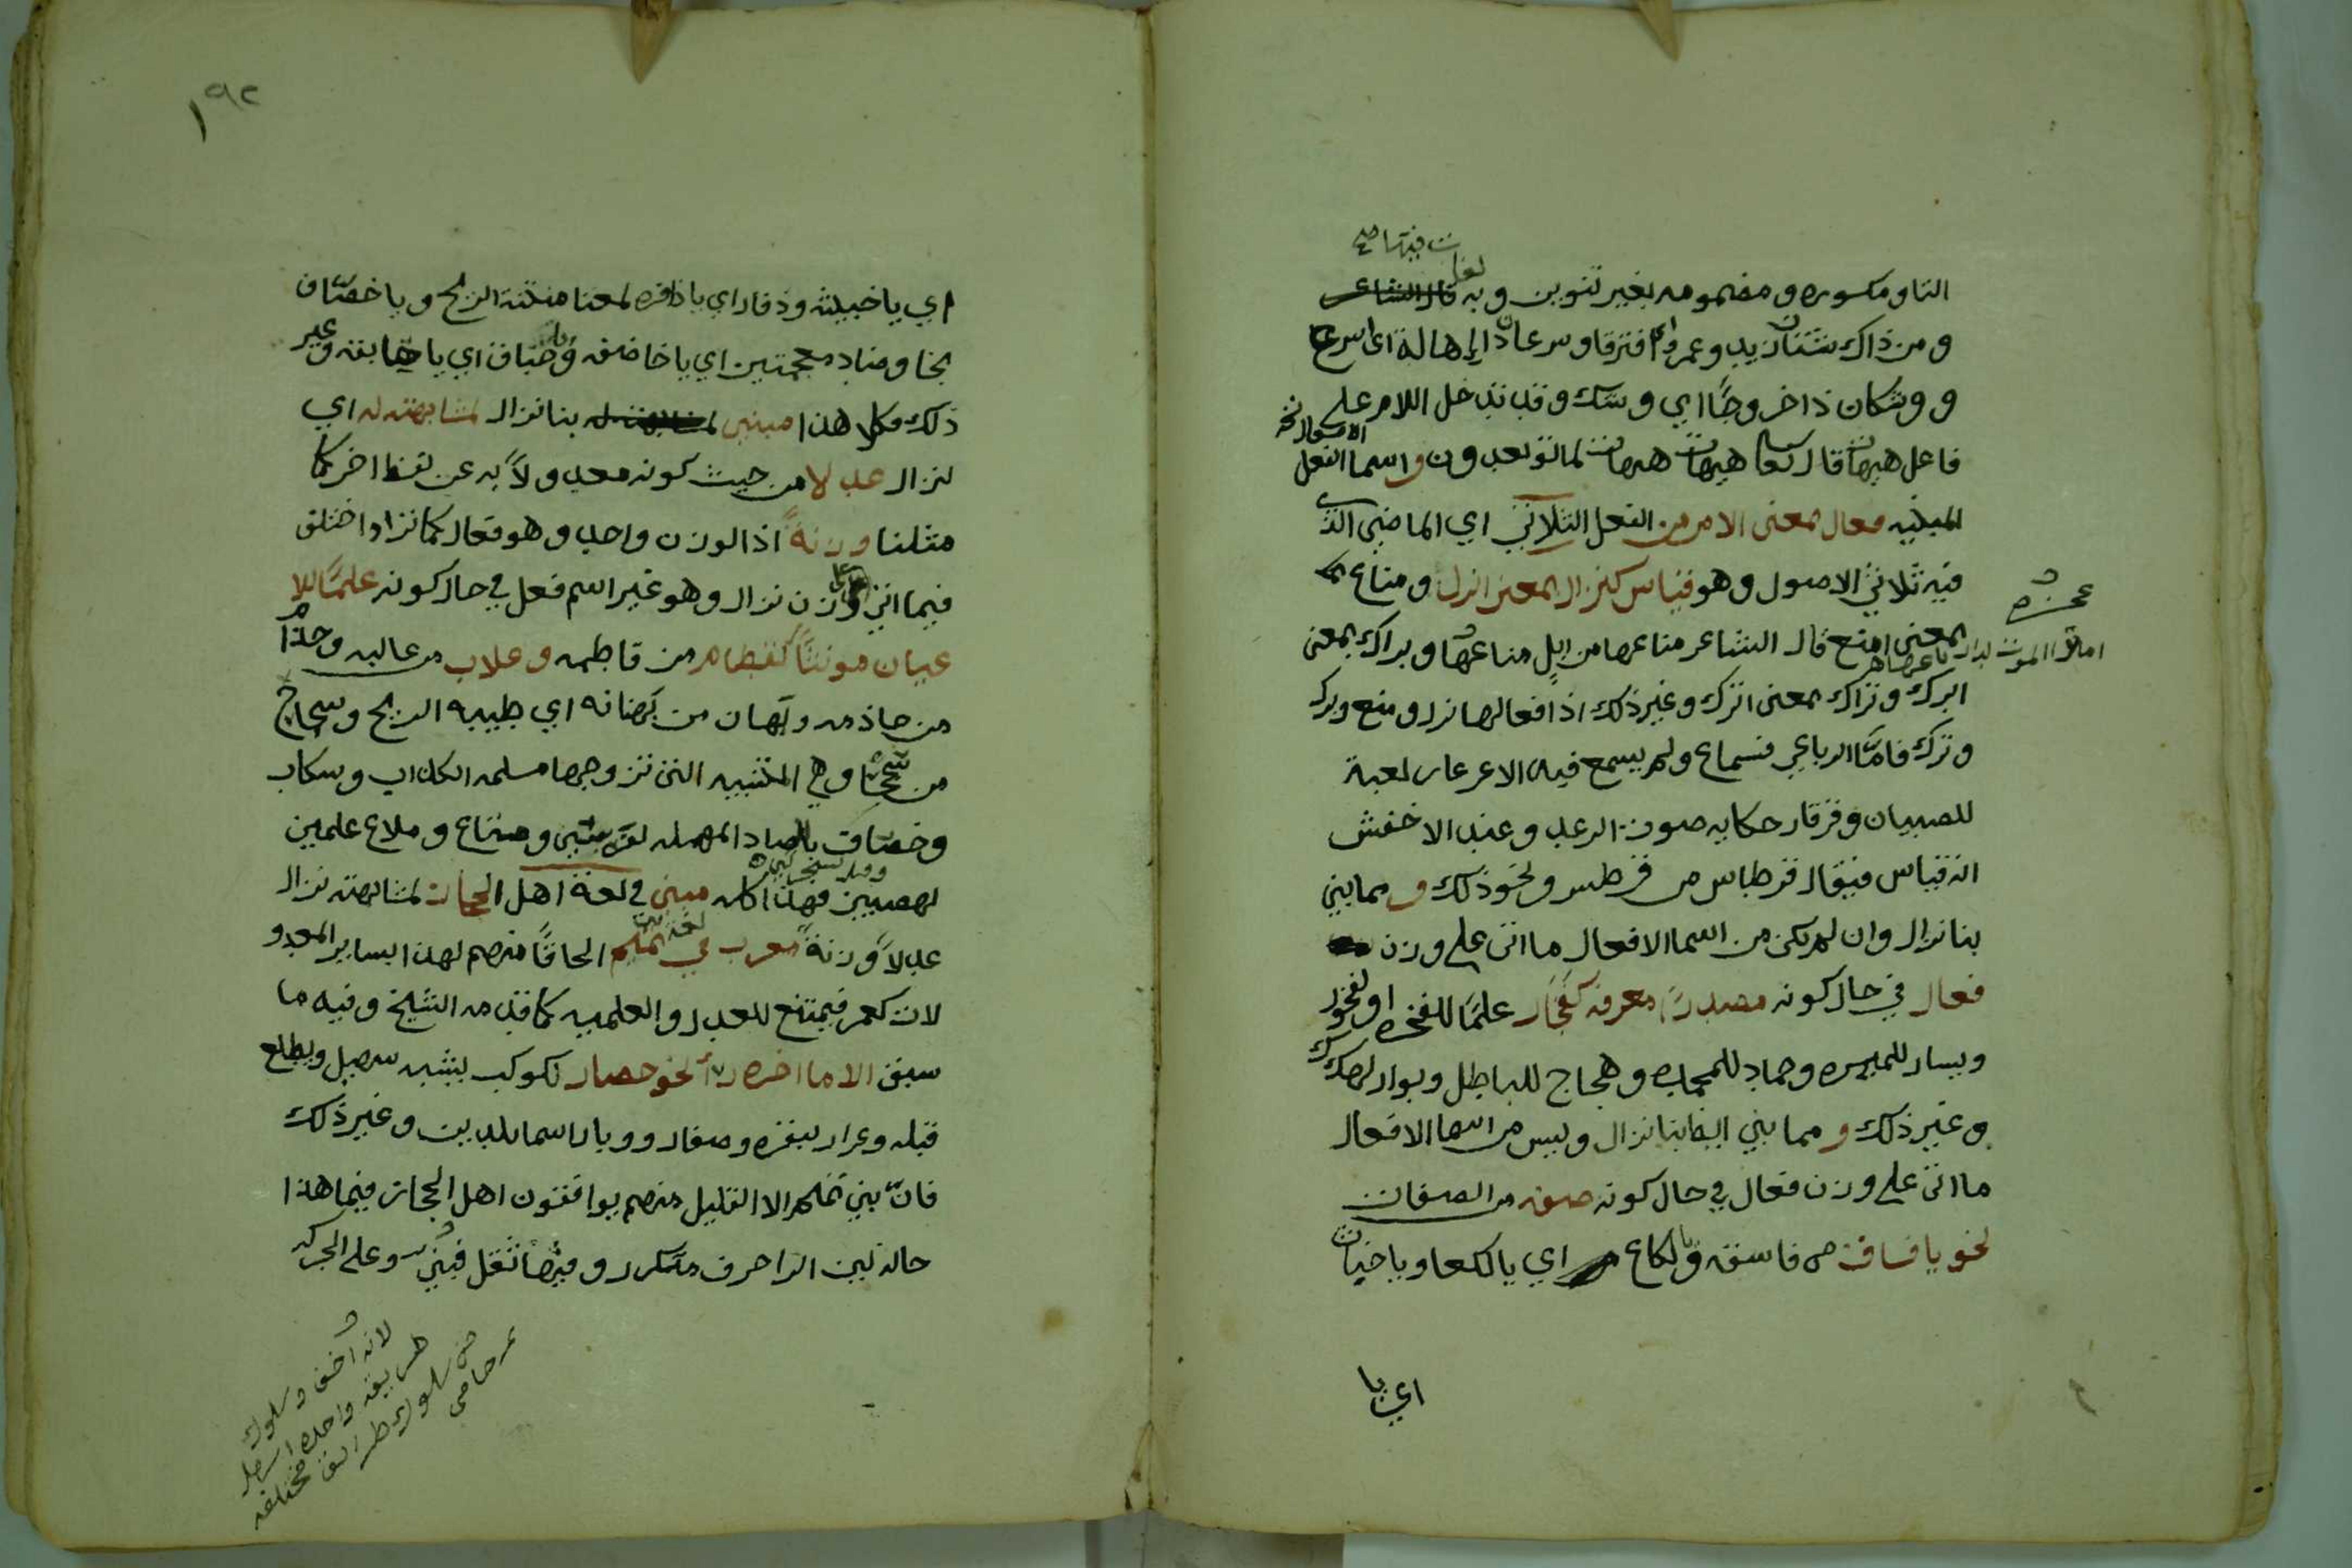 لغات فيها صح
التا و مكسوره و مضمومه بغير تنوين و به قال الشاعر
و من ذاك شتان زيد و عمرو اي افترقا و سرعان ذا إهالة اي اسرع
و وشكان ذا خروجًا اي وشك و قد تدخل اللام على
فاعل هيهات قال تعالى هيهات هيهات لما توعدون و اسما الفعل
المبنيه فعال بمعنى الامر من الفعل الثلاثي اي الماضي الذي
فيه ثلاثة الاصول و هو قياس كنزال بمعنى انزل و مناع
بمعنى امنع قال الشاعر مناعها من ابل مناعها و براك بمعنى
عجزه
اما ترا الموت لدا ارباعها
ابرك و تراك بمعنى اترك و غير ذلك اذ افعالها نزل و منع و برك
و ترك فامّا الرباعي فسماع و لم يسمع فيه الا عرعار لعبة
للصبيان و قرقار حكايه صوت الرعد و عند الاخفش
انه قياس فيقال قرطاس من قرطس و نحو ذلك و مما بني
بنا نزال و ان لم يكن من اسما الافعال ما اتى على وزن
فعال في حال كونه مصدرًا معرفه كفجار علمًا للفجره او لفجور
و يسار للميسره و حماد للمحمده و هجاج للباطل و بوار لهلك
و غير ذلك و مما بني ايضا بنا نزال و ليس من اسما الافعال
ما اتى على وزن فعال في حال كونه صفه من الصفات
نحو يا فساق من فاسقه و يا لكاع اي يا لكعا و يا خباث
اي يا
١٩٢
اي يا خبيثه و ذفار اي يا ذافره لمعنا منتنة الريح و يا خضاف
بخا و ضاد معجمتين اي يا خاضفه و يا حباق اي يا حابقه و غير
ذلك فكل هذا مبني بنا نزال لمشابهته له اي
لنزال عدلا من حيث كونه معدولاً به عن لفظ اخر كما
مثلنا و زنةً اذ الوزن واحد و هو فعال كما نزاد اختلف
فيما اتى على وزن نزال و هو غير اسم فعل في حال كونه علمًا للا
عيان مونثًا كقطام من قاطمه و غلاب من غالبه و حذام
من حاذمه و بهان من بهنانه اي طيبه الريح و سجاح
من سجحا و هي المتنبيه التي تزوجها مسلمه الكذاب و سكاب
و خصاف بالصاد المهمله لفرسين و مناع و ملاع علمين
لهضبين فهذا كله مبني في لغة اهل الحجاز لمشابهته نزال
عدلاً و زنةً معرب في لغة بني تميم الحاقًا منهم لهذا بساير المعدو
لات كعمر فيمتنع للعدل و العلميه كما قدمه الشيخ و فيه ما
سبق الا ما اخره را نحو حضار لكوكب يشبه سهيل و يطلع
قبله و عرار لبقره و صفار و وبار اسما بلدين و غير ذلك
فانّ بني تميم الا القليل منهم يوافقون اهل الحجاز فيما هذا
حاله لان الرا حرف متكرر و فيها ثقل فبنى و على الحركه
لانه اخف و سلوك
طريقه واحده اسهل
من سلوك طرائق مختلفه